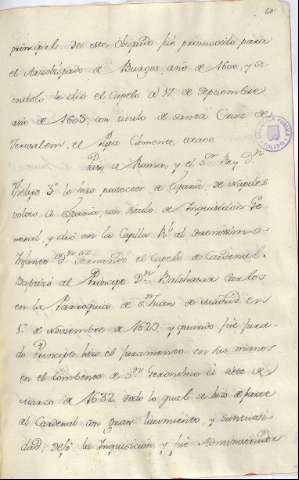 principal de este Obispado fue promovido para
el Arzobispado de Burgos, año de 1600, y
el Capelo a 17 de Septiembre
año de 1603, con titulo de santa Cruz de
Jerusalem, el Papa Clemente octavo
Paso a Roma, y el S.or Rey D.n
Felipe 3.o lo hizo protector de España, de Napoles
volvio a España, con titulo de Inquisidor Ge-
neral, y dio en la Capilla R.l al Serenisimo
Infante D.n Fernando el Capelo de Cardenal.
Bautizó al Principe D.n Balthasar Carlos
en la Parroquia de S.n Juan de Madrid en
de Noviembre de 1629, y quando fue jura-
do Principe hizo el juramento en sus manos
en el Combento de S.n Geronimo a siete de
Marzo de 1632 todo lo qual se hizo de parte
del Cardenal con gran lucimiento, y suntuosi-
dad, dejó la Inquisicion y fue Administrador